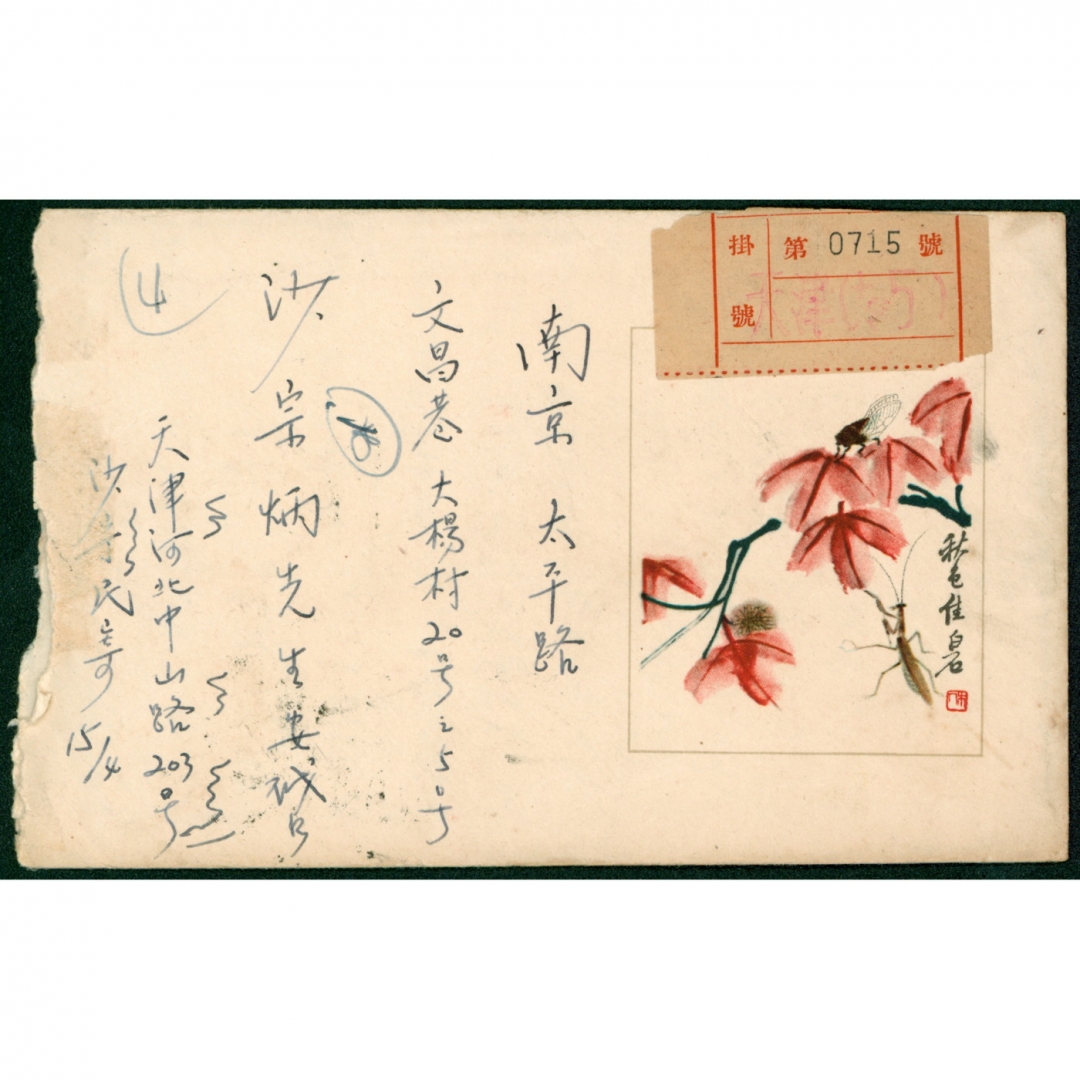 掛號
第 0715 號
天津
秋色佳 白石
南京 太平路
文昌巷 大楊村20号之5号
沙宗炳先生
天津河北中山路203号
沙 民寄
15/4
4